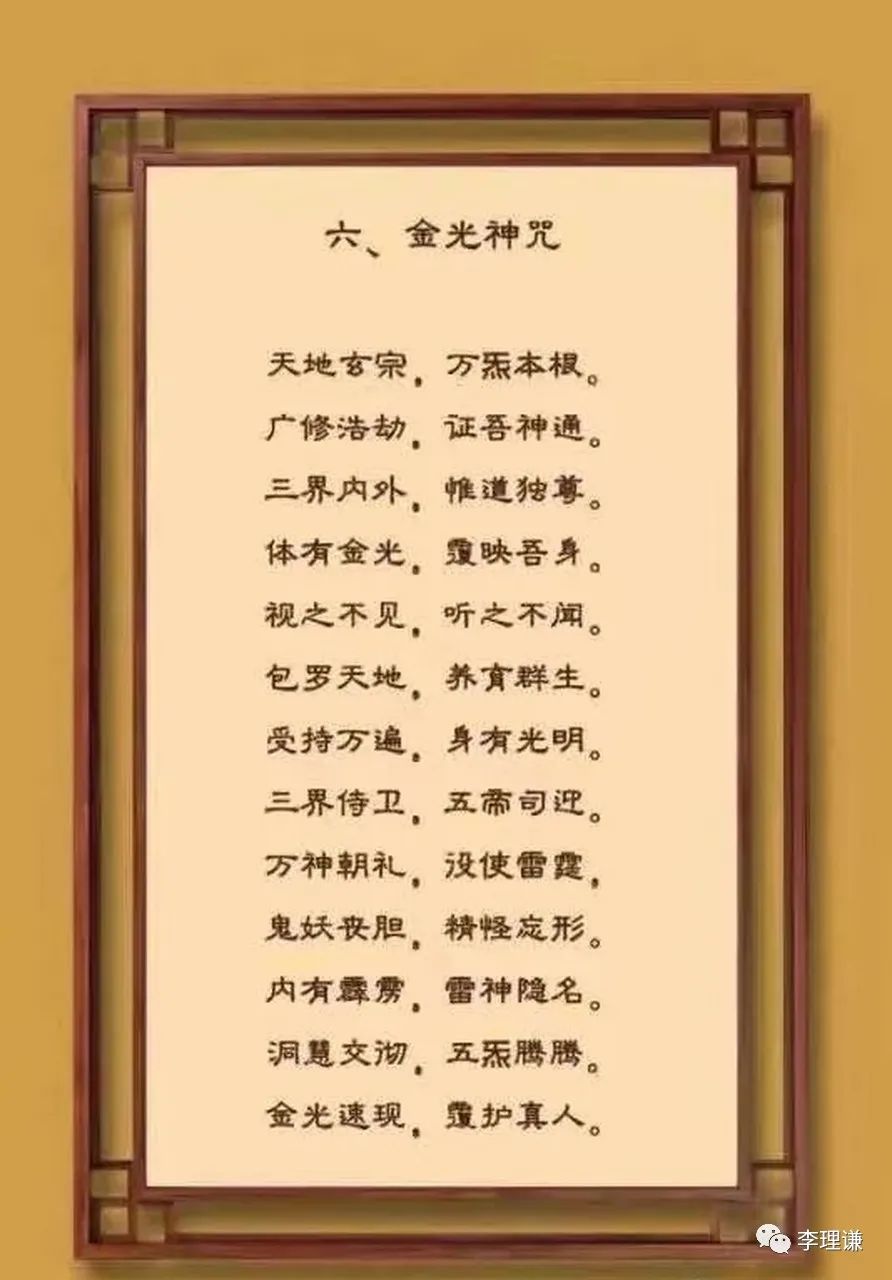 六、金光神咒
天地玄宗，万炁本根。
广修浩劫，证吾神通。
三界内外，惟道独尊。
体有金光，覆映吾身。
视之不见，听之不闻。
包罗天地，养育群生。
受持万遍，身有光明。
三界侍卫，五帝司迎。
万神朝礼，役使雷霆，
鬼妖丧胆，精怪忘形。
内有霹雳，雷神隐名。
洞慧交彻，五炁腾腾。
金光速现，覆护真人。
李理谦